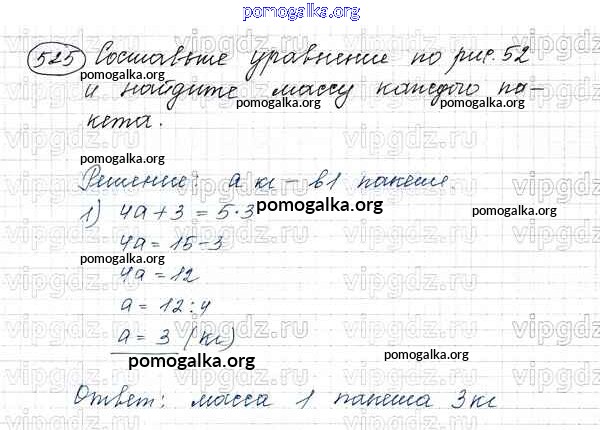 pomogalka.org
525 Составьте уравнение по рис. 52
pomogalka.org pomogalka.org
и найдите массу каждого па-
pomogalka.org pomogalka.org
кета.
pomogalka.org
Решение: а кг – в 1 пакете.
1) 4а + 3 = 5·3
pomogalka.org pomogalka.org
4а = 15 – 3
pomogalka.org
4а = 12
pomogalka.org
а = 12 : 4
а = 3 (кг)
pomogalka.org pomogalka.org
Ответ: масса 1 пакета 3 кг
vipgdz.ru